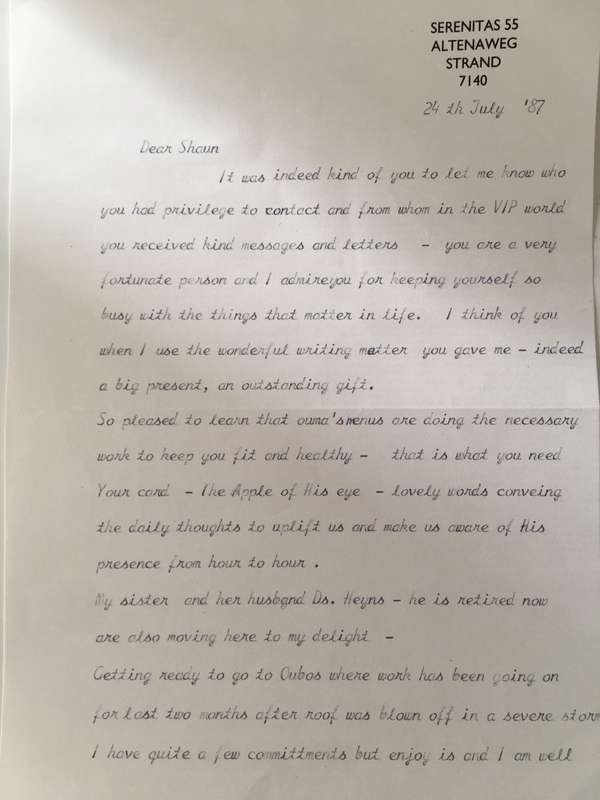 SERENITAS 55
ALTENAWEG
STRAND
7140
24 th July '87
Dear Shaun
It was indeed kind of you to let me know who
you had privilege to contact and from whom in the VIP world
you received kind messages and letters - you are a very
fortunate person and I admireyou for keeping yourself so
busy with the things that matter in life. I think of you
when I use the wonderful writing matter you gave me - indeed
a big present, an outstanding gift.
So pleased to learn that ouma'smenus are doing the necessary
work to keep you fit and healthy - that is what you need
Your card - The Apple of His eye - lovely words conveing
the daily thoughts to uplift us and make us aware of His
presence from hour to hour .
My sister and her husband Ds. Heyns - he is retired now
are also moving here to my delight -
Getting ready to go to Oubos where work has been going on
for last two months after roof was blown off in a severe storm
I have quite a few committments but enjoy is and I am well